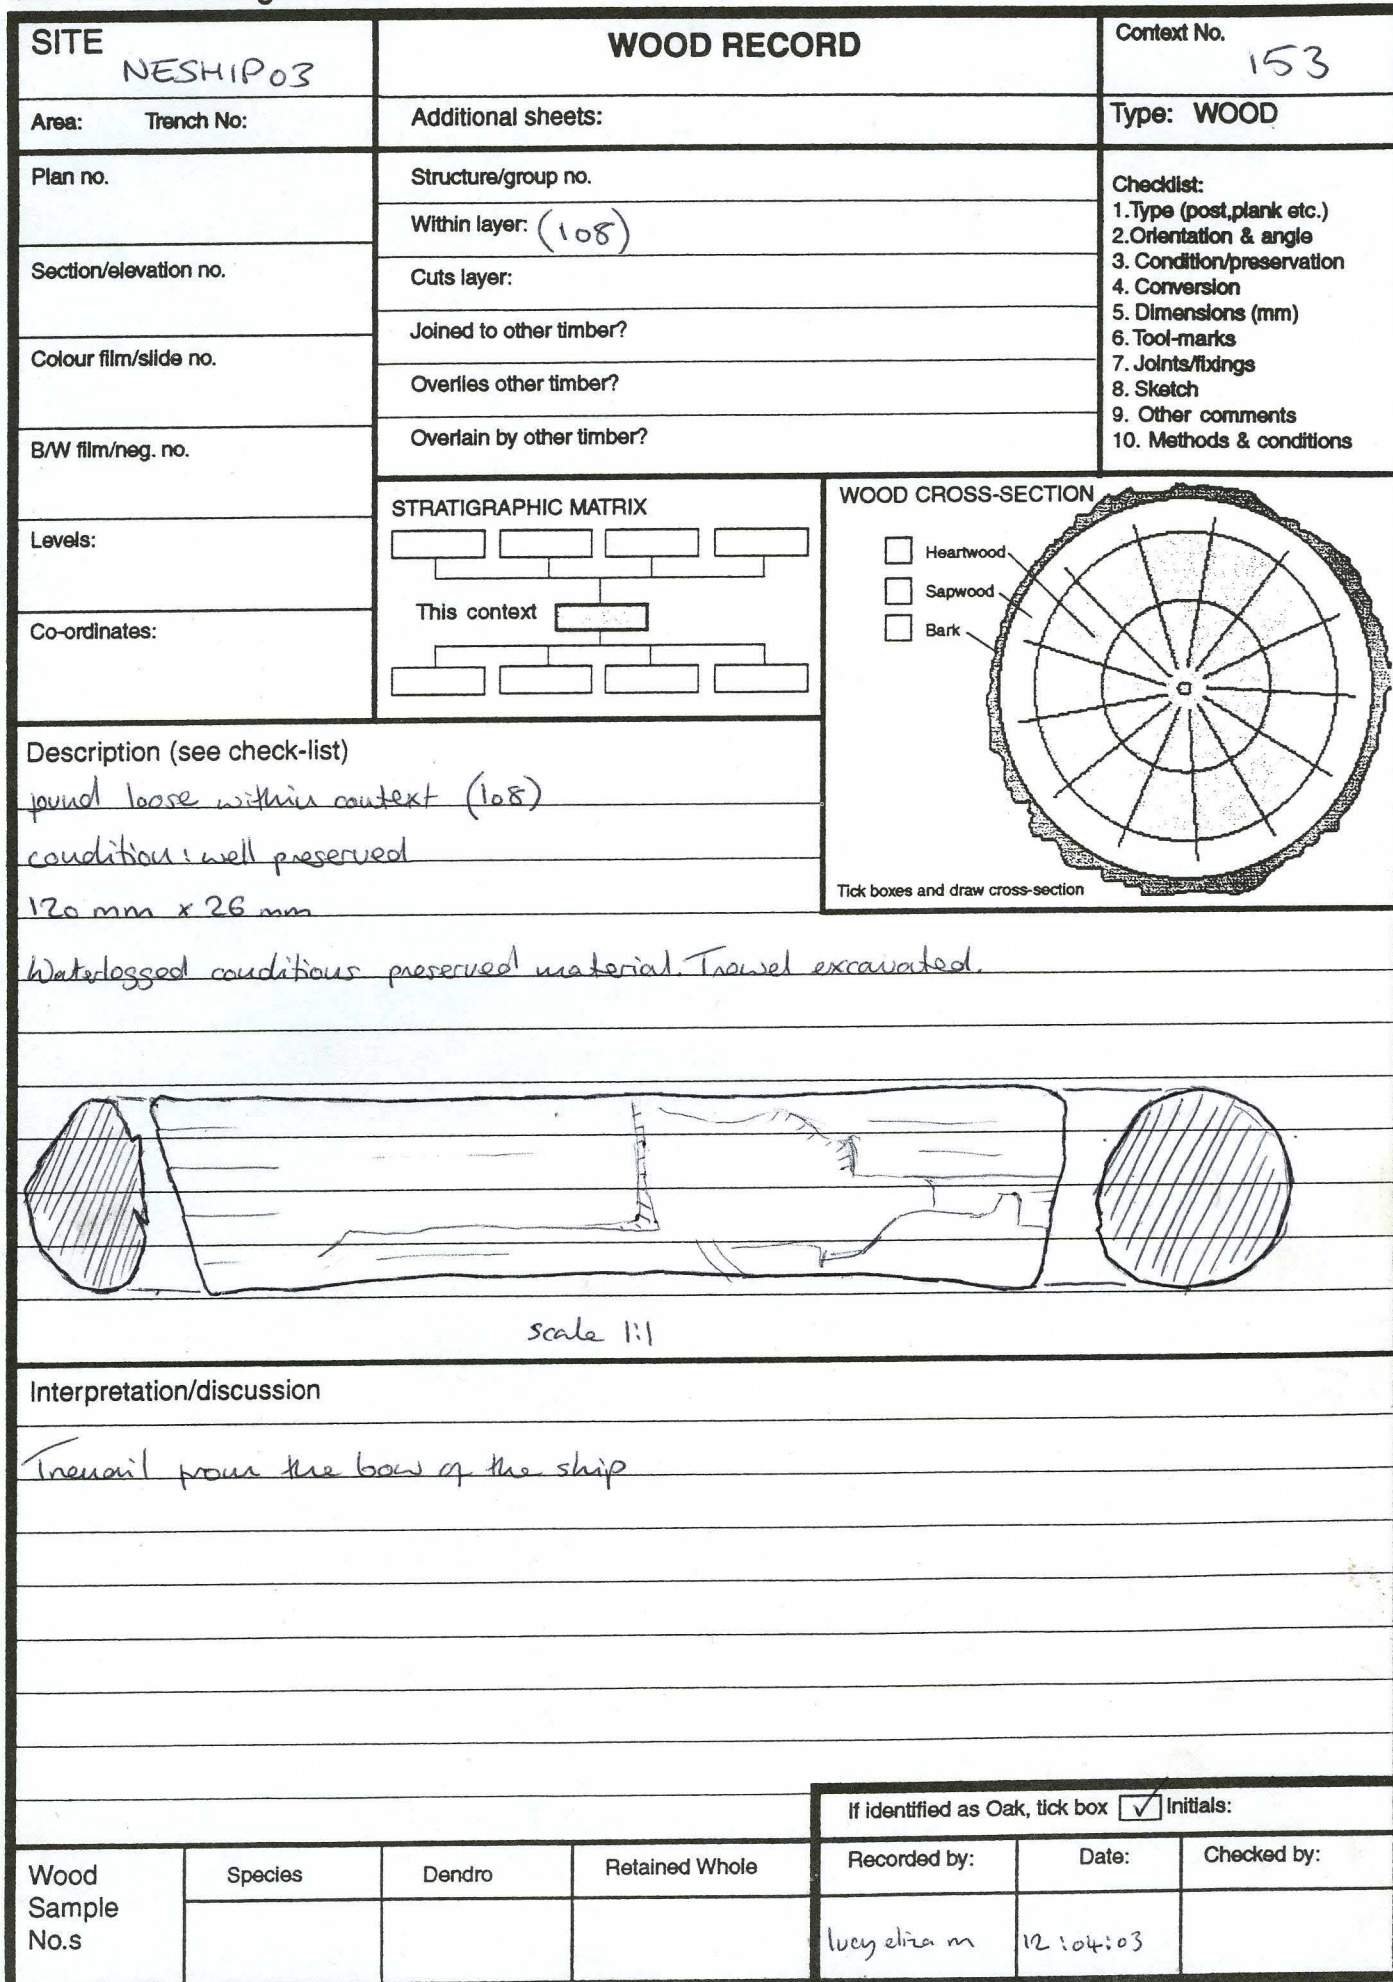 SITE
NESHIP03
WOOD RECORD
Context No.
153
Area: Trench No:
Additional sheets:
Type: WOOD
Plan no.
Section/elevation no.
Colour film/slide no.
B/W film/neg. no.
Levels:
Co-ordinates:
Structure/group no.
Within layer: (108)
Cuts layer:
Joined to other timber?
Overlies other timber?
Overlain by other timber?
Checklist:
1.Type (post,plank etc.)
2.Orientation & angle
3. Condition/preservation
4. Conversion
5. Dimensions (mm)
6. Tool-marks
7. Joints/fixings
8. Sketch
9. Other comments
10. Methods & conditions
STRATIGRAPHIC MATRIX
This context
WOOD CROSS-SECTION
Heartwood
Sapwood
Bark
Tick boxes and draw cross-section
Description (see check-list)
found loose within context (108)
condition: well preserved
120 mm x 26 mm
Waterlogged conditions preserved material. Trowel excavated.
scale 1:1
Interpretation/discussion
Trenail from the bow of the ship
If identified as Oak, tick box ✓ Initials:
Wood
Sample
No.s
Species
Dendro
Retained Whole
Recorded by:
Date:
Checked by:
lucy eliza m
12:04:03